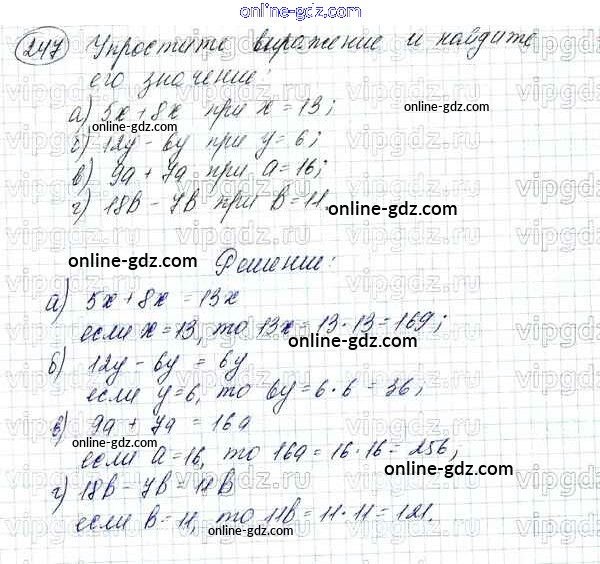 online-gdz.com
247 Упростите выражение и найдите
его значение:
online-gdz.com
а) 5x + 8x при x = 13;
online-gdz.com
б) 12y - 6y при y = 6;
в) 9a + 7a при a = 16;
г) 18в - 7в при в = 11.
online-gdz.com
online-gdz.com
Решение:
а) 5x + 8x = 13x
online-gdz.com
если x = 13, то 13x = 13 · 13 = 169;
online-gdz.com
б) 12y - 6y = 6y
если y = 6, то 6y = 6 · 6 = 36;
online-gdz.com
в) 9a + 7a = 16a
online-gdz.com
если a = 16, то 16a = 16 · 16 = 256,
online-gdz.com
г) 18в - 7в = 11в
если в = 11, то 11в = 11 · 11 = 121.
online-gdz.com